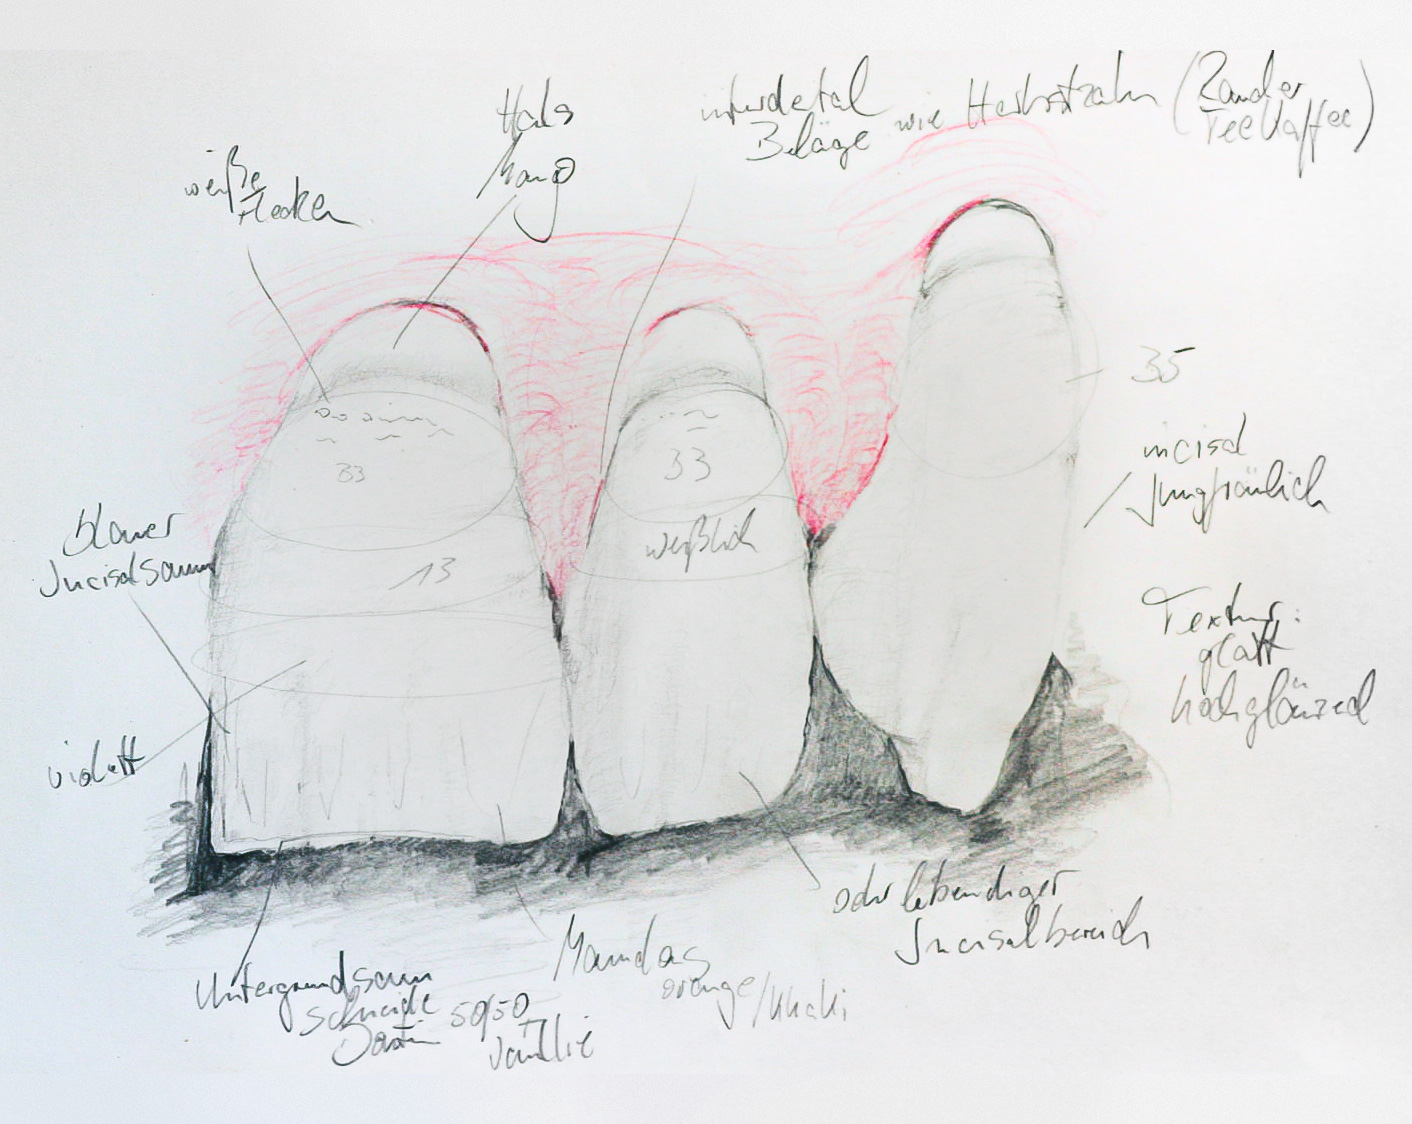 weiße
Flecken
Hals
Mango
interdetal
Beläge wie Herbstzahn (Rander
Tee Kaffee)
35
incisal
jungfräulich
Textur:
glatt
hochglänzed
33
33
weißlich
13
blauer
Incisalsaum
violett
Untergrundsaum
Schneide
50/50
Vanillie
Mamelons
orange/Khaki
sehr lebendiger
Incisalbereich